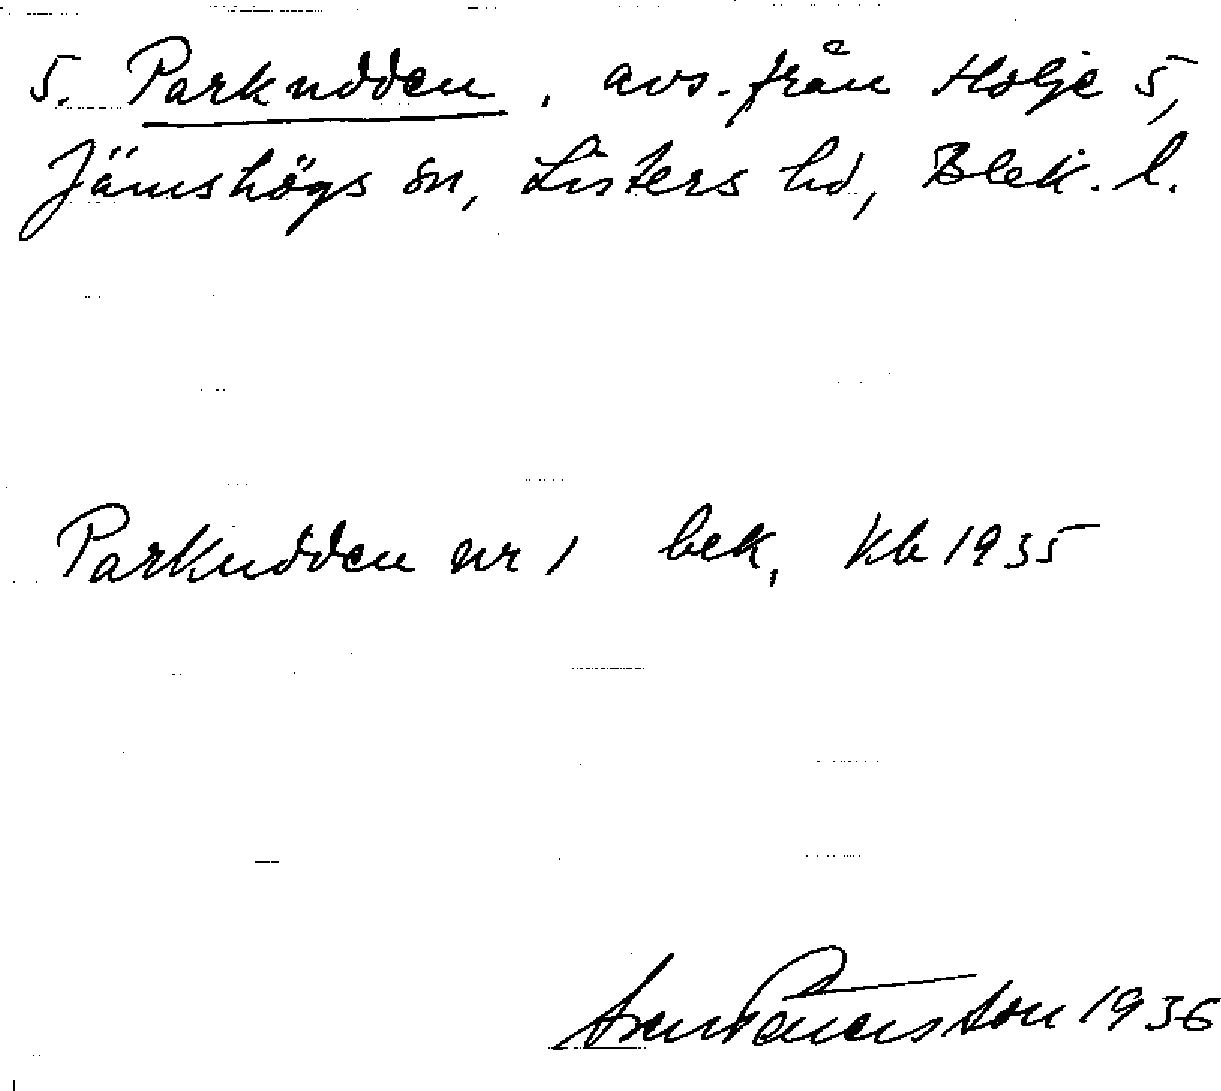 5. Parkudden, avs. från Holje 5,
Jämshögs sn, Listers hd, Blek. l.
Parkudden nr 1 bek, Kb 1935
1936